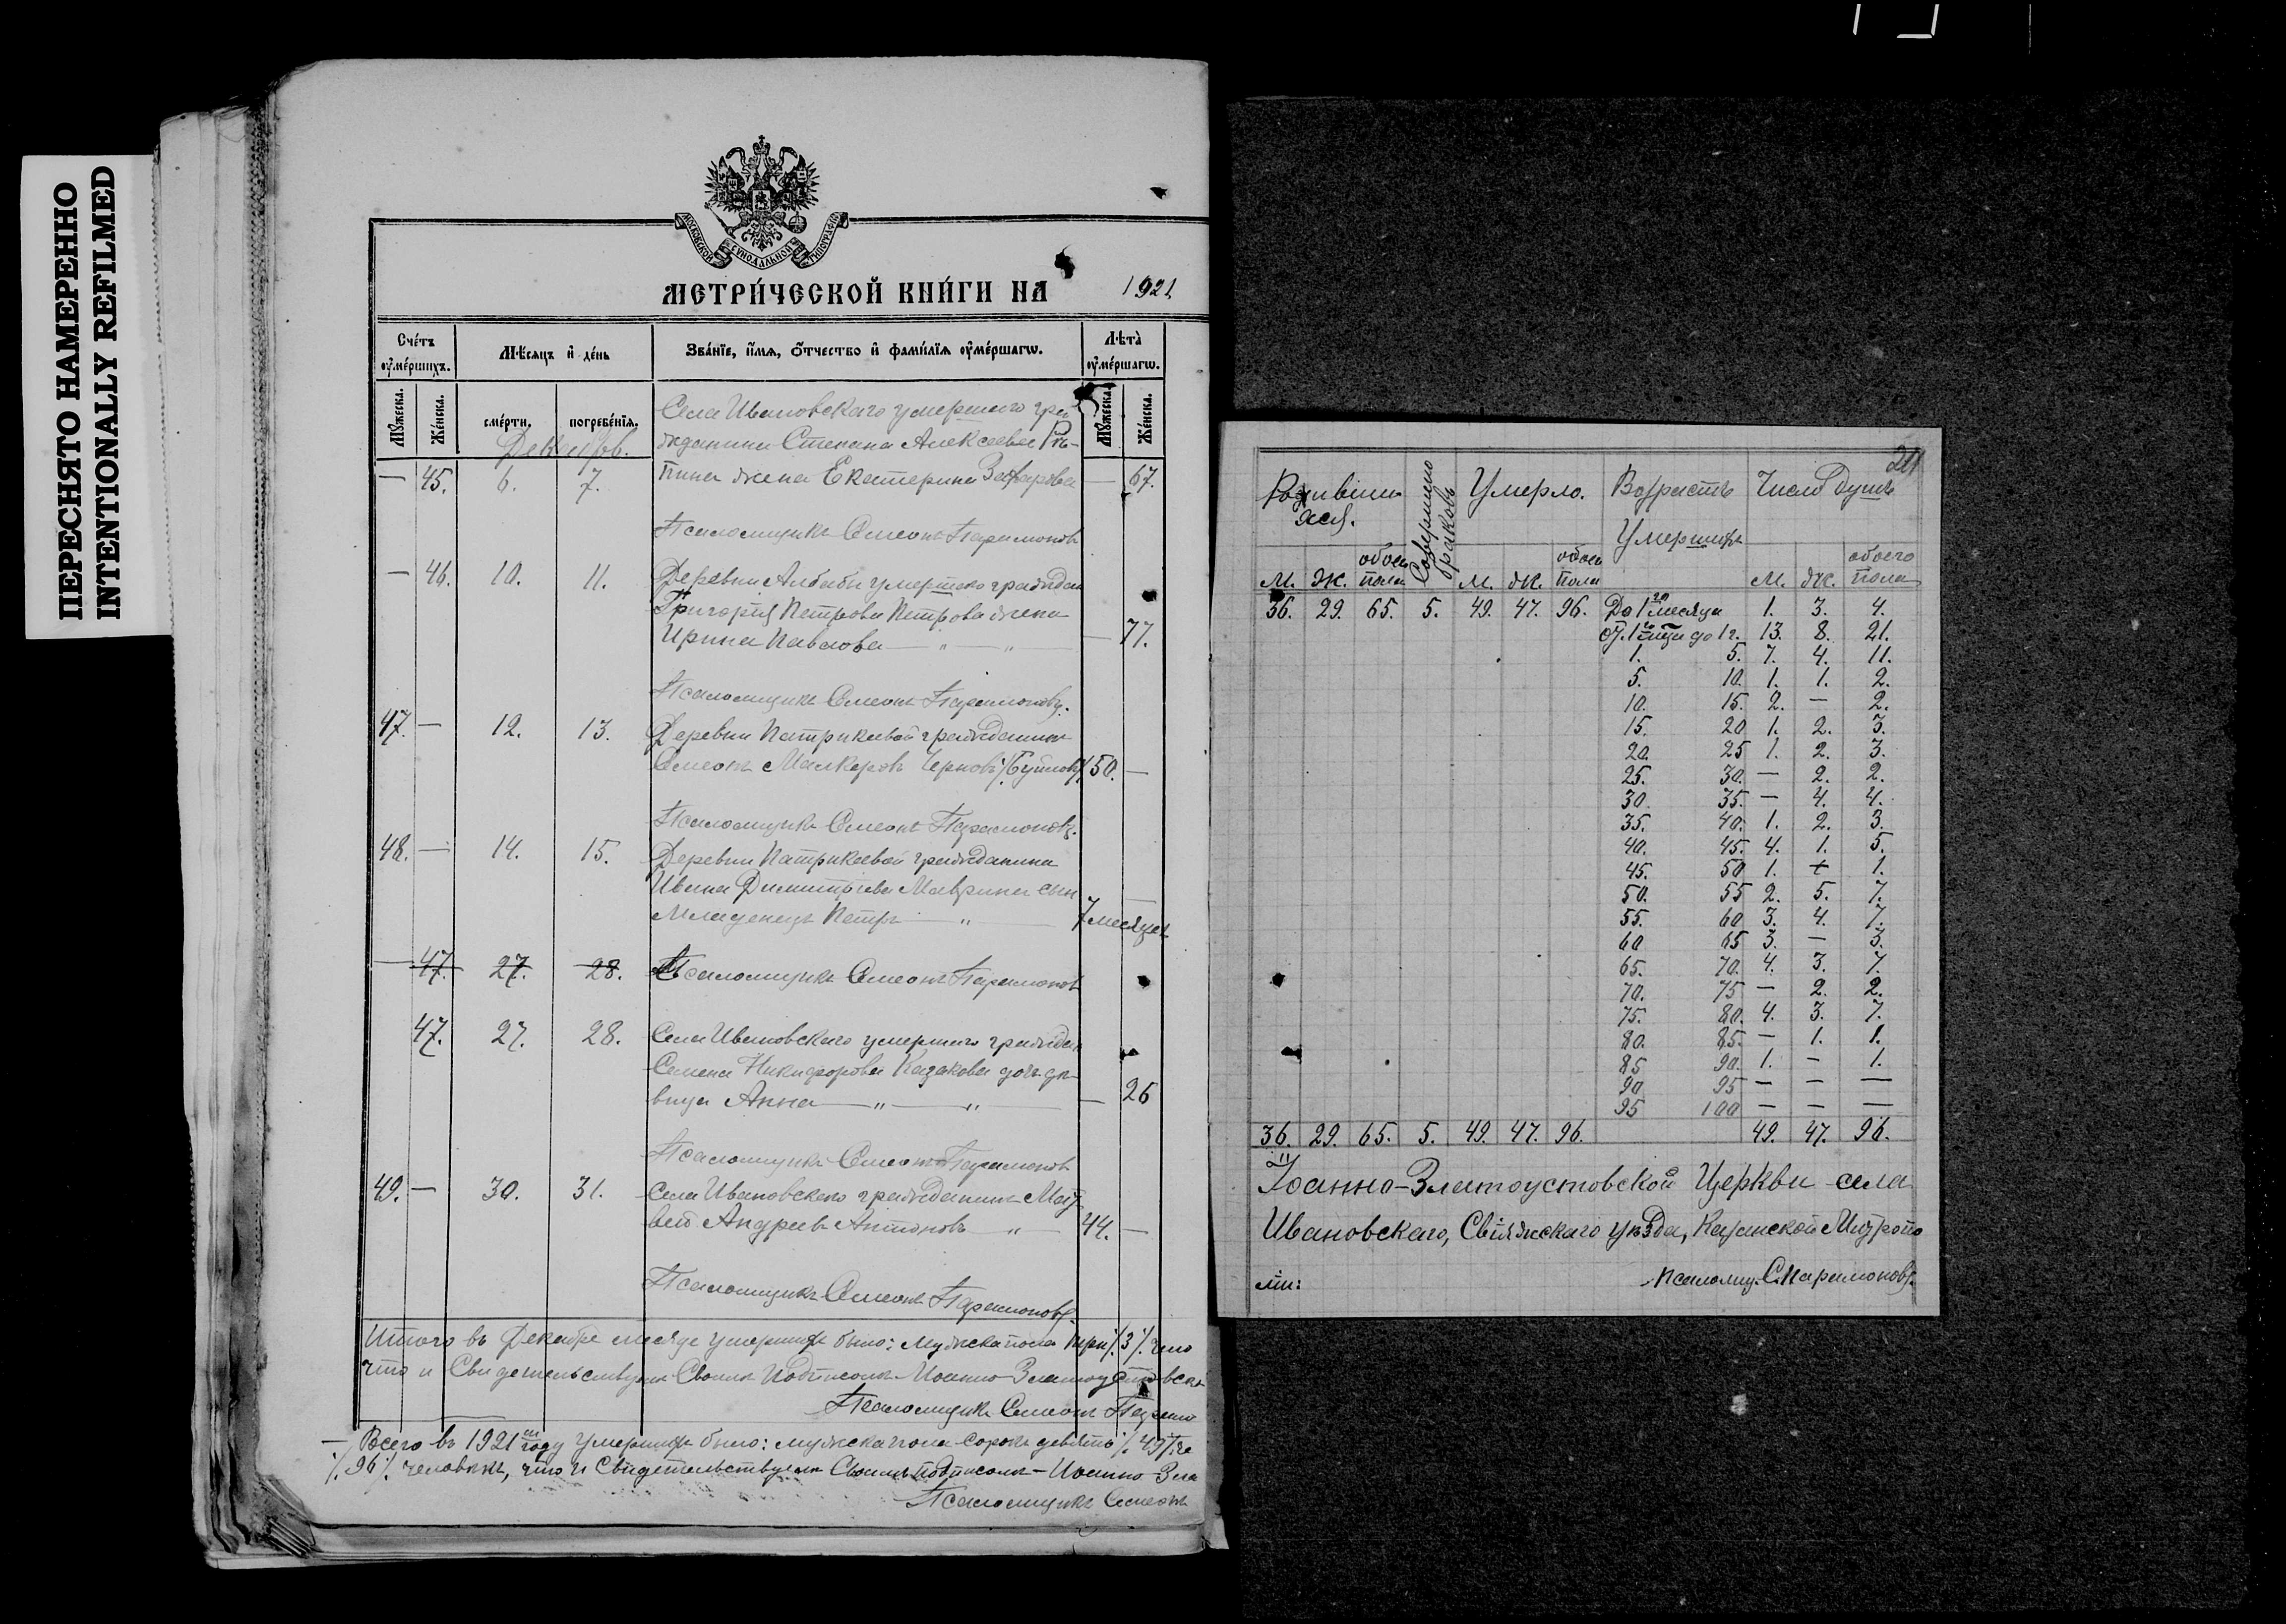 ПЕРЕСНЯТО НАМЕРЕННО
INTENTIONALLY REFILMED
МОСКОВСКОЙ СУНОДАЛЬНОЙ ТИПОГРАФІИ
МЕТРИ́ЧЕСКОЙ КНИ́ГИ НА 1921
Сче́тъ ᲂу҆ме́ршихъ.
Мѣ́сяцъ и҆ де́нь
Зва́нїе, и҆́мѧ, ѻ҆́тчество и҆ фами́лїѧ ᲂу҆ме́ршагѡ.
Лѣ́та ᲂу҆ме́ршагѡ.
Мꙋ́жеска.
Же́нска.
сме́рти.
погребе́нїѧ.
Мꙋ́жеска.
Же́нска.
Декабрь.
Села Ивановскаго умершаго гра
жданина Степана Алексеева Рѣ-
— 45. 6. 7. пина жена Екатерина Захарова — 67.
Псаломщикъ Симеонъ Парамоновъ
— 46. 10. 11. Деревни Албабы умершаго граждан
Григорія Петрова Петрова жена
Ирина Павлова — „ — „ — — 77.
Псаломщикъ Симеонъ Парамоновъ.
47. — 12. 13. Деревни Патрикеевой гражданинъ
Симеонъ Черновъ 50. —
Псаломщикъ Симеонъ Парамоновъ.
48. — 14. 15. Деревни Патрикеевой гражданина
Ивана Димитріева Маврина сын
Младенецъ Петръ „ — 7 месяцев
— 47. 27. 28. Псаломщикъ Симеонъ Парамоновъ
47. 27. 28. Села Ивановскаго умершаго граждан
Семена Никифорова Казакова дочь дѣ-
вица Анна — „ — „ — — 26
Псаломщикъ Симеонъ Парамоновъ
49. — 30. 31. Села Ивановскаго гражданинъ Мат
вей Андреевъ Антоновъ — „ — 44. —
Псаломщикъ Симеонъ Парамоновъ.
Итого въ Декабре месяце умершихъ было: мужска пола три /.3/.
что и Свидетельствуемъ Своимъ Подписомъ Иоанно-Златоустовск
Псаломщикъ Симеонъ Парамо
Всего въ 1921 году умершихъ было: мужска пола сорокъ девять /.49/.
/.96/. человекъ, что и Свидетельствуемъ Своимъ Подписомъ — Иоанно-Зла
Псаломщикъ Симеонъ
Родивших
ся.
Совершено браковъ
Умерло.
Возрастъ
Умершихъ
Число Душъ
М. Ж. обоего пола М. Ж. обоего пола М. Ж. обоего пола
36. 29. 65. 5. 49. 47. 96. До 1го месяца 1. 3. 4.
От 1 до 1 г. 13. 8. 21.
1. 5. 7. 4. 11.
5. 10. 1. 1. 2.
10. 15. 2. — 2.
15. 20 1. 2. 3.
20. 25 1. 2. 3.
25. 30. — 2. 2.
30. 35. — 4. 4.
35. 40. 1. 2. 3.
40. 45. 4. 1. 5.
45. 50 1. + 1.
50. 55 2. 5. 7.
55. 60 3. 4. 7.
60 65 3. — 3.
65. 70. 4. 3. 7.
70. 75 — 2. 2.
75. 80. 4. 3. 7.
80. 85. — 1. 1.
85 90. 1. — 1.
90. 95 — — —
95 100 — — —
36. 29. 65. 5. 49. 47. 96. 49. 47. 96.
Іоанно-Златоустовской Церкви села
Ивановскаго, Свіяжскаго уѣзда, Казанской Митропо
ліи:
Псаломщ. С. Парамоновъ.